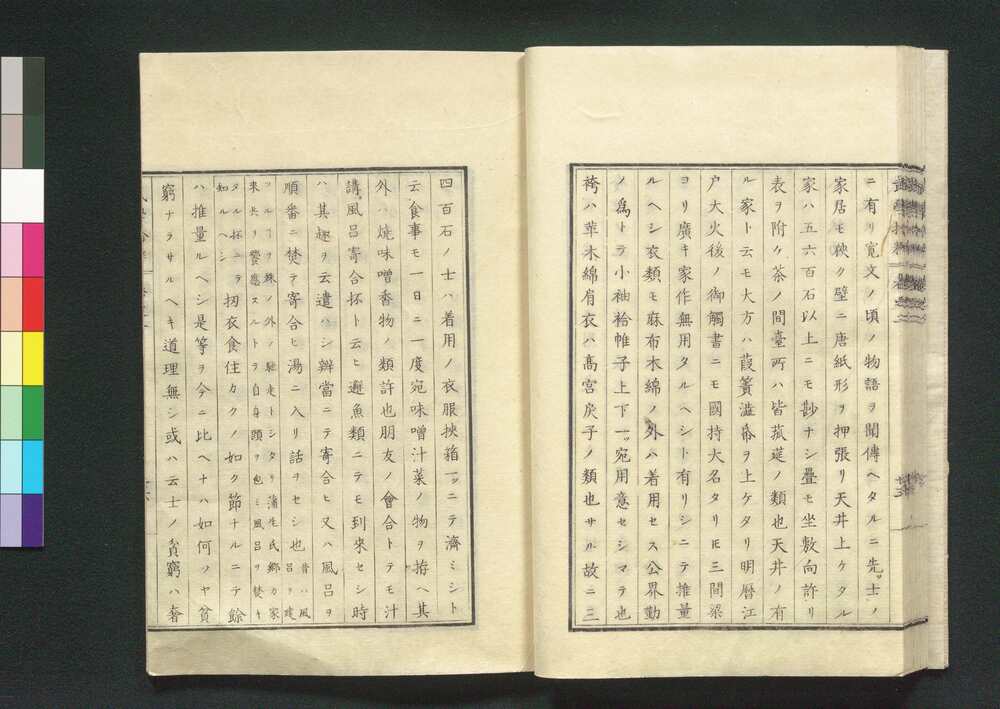 ニ有リ寛文ノ頃ノ物語ヲ聞傳ヘタルニ先ッ士ノ
家居モ狹ク壁ニ唐紙形ヲ押張リ天井上ケタル
家ハ五六百石以上ニモ尠ナシ疊モ坐敷向許リ
表ヲ附ケ茶ノ間臺所ハ皆菰莚ノ類也天井ノ有
ル家ト云モ大方ハ葭簀澁帋ヲ上ケタリ明曆江
戸大火後ノ御觸書ニモ國持大名タリ𪜈三間梁
ヨリ廣キ家作無用タルヘシト有リシニテ推量
ルヘシ衣類モ麻布木綿ノ外ハ着用セス公界勤
ノ爲トラ小袖袷帷子上下一ッ宛用意セシマテ也
袴ハ葦木綿肩衣ハ髙宮戻子ノ類也サル故ニ三
四百石ノ士ハ着用ノ衣服挾箱一ッニテ濟ミシト
云食事モ一日ニ一度宛味噌汁菜ノ物ヲ拵ヘ其
外ハ燒味噌香物ノ類許也朋友ノ會合トテモ汁
講風呂寄合抔ト云ヒ避魚類ニテモ到來セシ時
ハ其趣ヲ云遣ハシ辨當ニテ寄合ヒ又ハ風呂ヲ
順番ニ焚テ寄合ヒ湯ニ入リ話ヲセシ也昔ハ風呂ヲ建
ツルヿヲ殊ノ外ノ馳走トシタリ蒲生氏郷カ家
來共ヲ饗應スルトラ自身頭ヲ包ミ風呂ヲ焚キ
タル抔ニラ
知ルヘシ
扨衣食住カクノ如ク節ナルニテ餘
ハ推量ルヘシ是等ヲ今ニ比ヘナハ如何ノヤ貧
窮ナラサルヘキ道理無シ或ハ云士ノ貧窮ハ奢